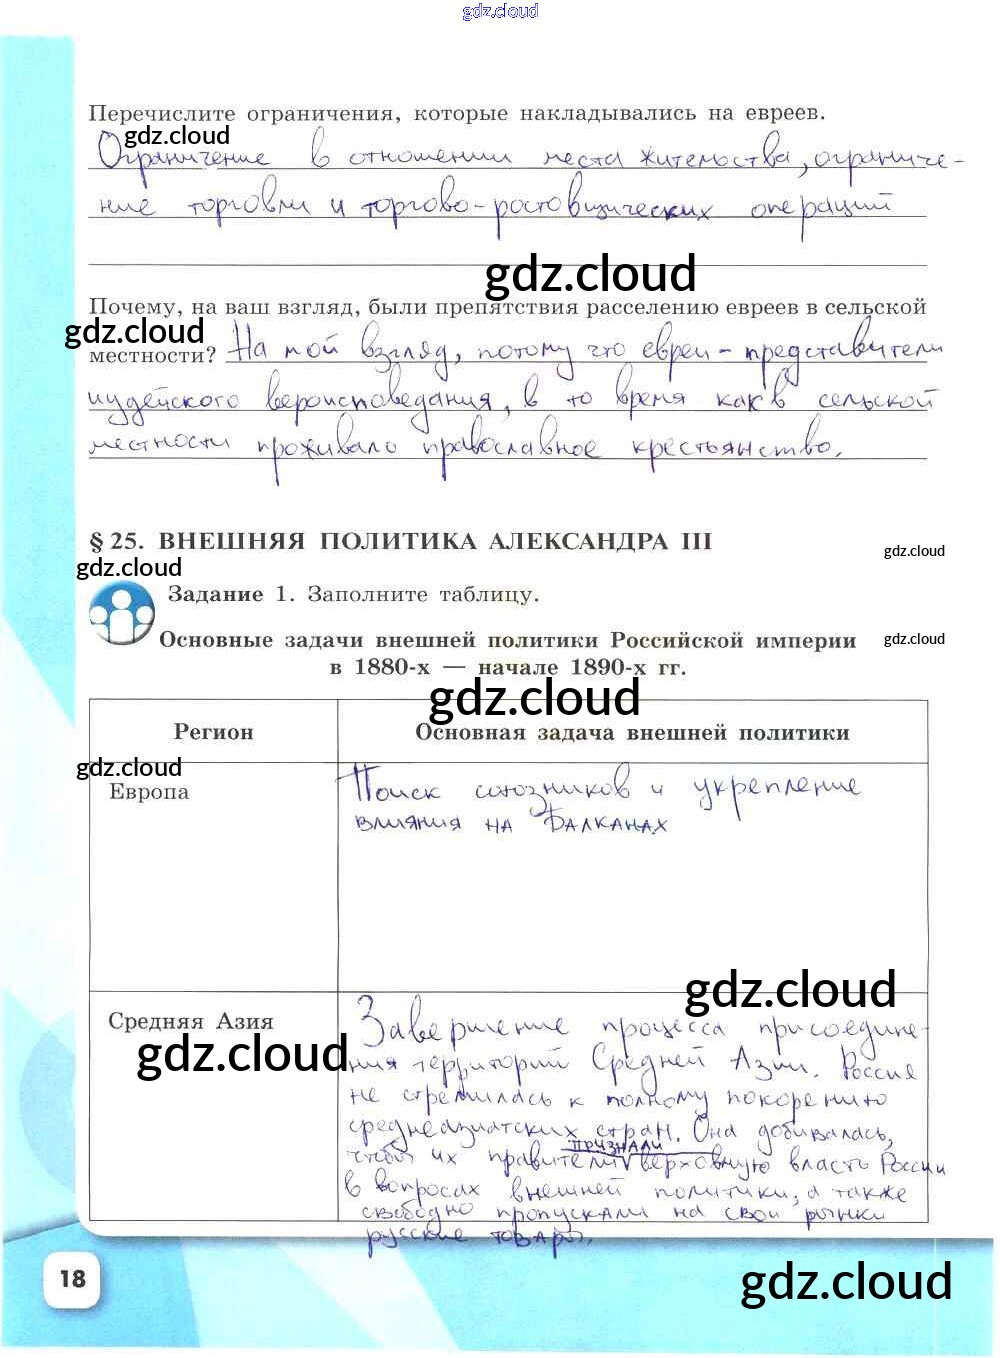 gdz.cloud
Перечислите ограничения, которые накладывались на евреев.
gdz.cloud
Ограничение в отношении места жительства, ограниче-
ние торговли и торгово-ростовщических операций
gdz.cloud
Почему, на ваш взгляд, были препятствия расселению евреев в сельской
gdz.cloud
местности? На мой взгляд, потому что евреи - представители
иудейского вероисповедания, в то время как в сельской
местности проживало православное крестьянство.
§ 25. ВНЕШНЯЯ ПОЛИТИКА АЛЕКСАНДРА III
gdz.cloud
gdz.cloud
Задание 1. Заполните таблицу.
Основные задачи внешней политики Российской империи
gdz.cloud
в 1880-х — начале 1890-х гг.
gdz.cloud
Регион
Основная задача внешней политики
gdz.cloud
Европа
Поиск союзников и укрепление
влияния на Балканах
gdz.cloud
Средняя Азия
gdz.cloud
Завершение процесса присоедине-
ния территорий Средней Азии. Россия
не стремилась к полному покорению
среднеазиатских стран. Она добивалась,
чтобы их правители признали верховную власть России
в вопросах внешней политики, а также
свободно пропускали на свои рынки
русские товары.
18
gdz.cloud